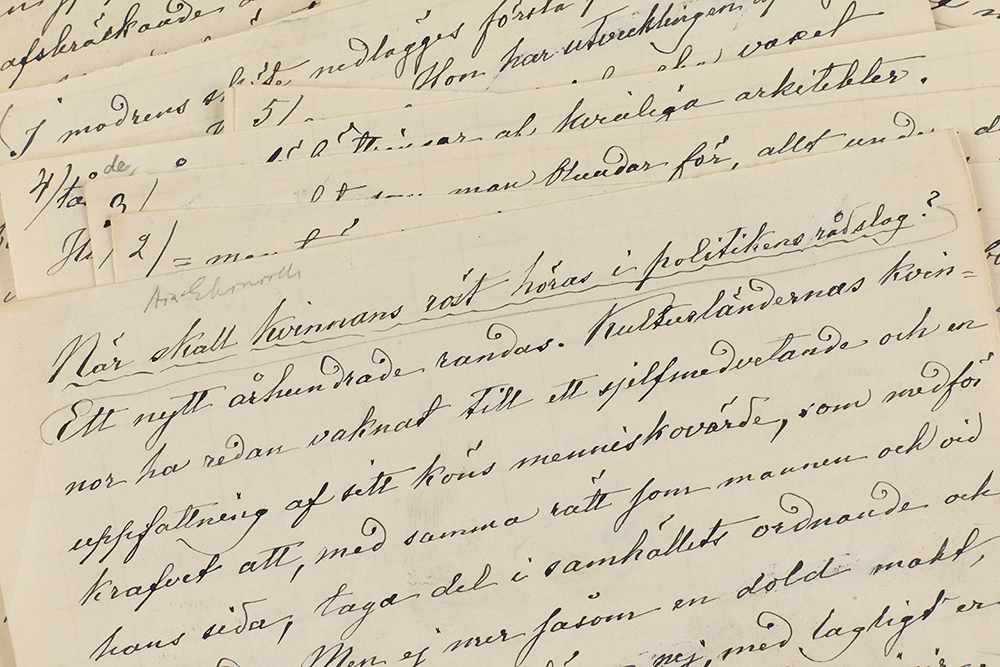 afskräckande
nedlägges första
Hon har utvecklingen af
I modrens
vaxel
5/
af kvinliga arkitekter.
4/
de,
man kundar för, allt unde
3/
2/ =
När skall kvinnans röst höras i politikens rådslag?
Ett nytt århundrade randas. Kulturländernas kvin=
nor ha redan vaknat till ett sjelfmedvetande och en
uppfattning af sitt köns menniskovärde, som medför
krafvet att, med samma rätt som mannen och vid
hans sida, taga del i samhällets ordnande och
Men ej mer såsom en dold makt,
nej, med lagligt er